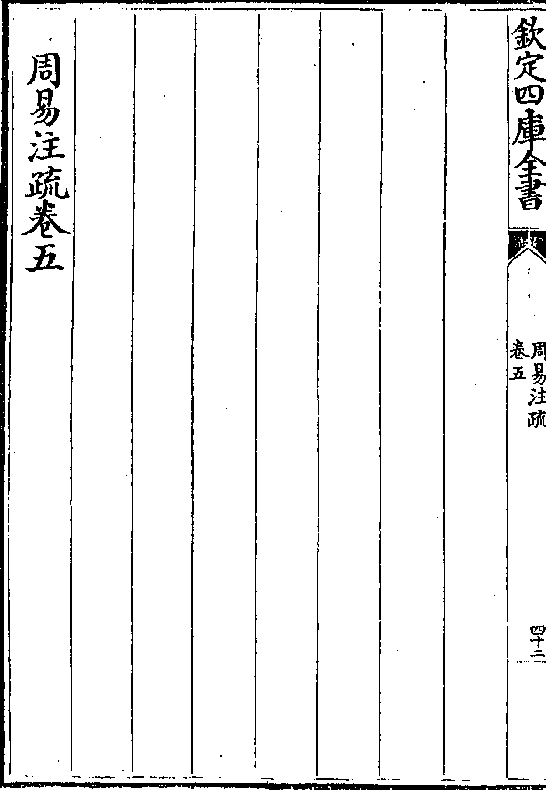 欽定四庫全書
周易注疏
卷五
四十三
周易注疏卷五